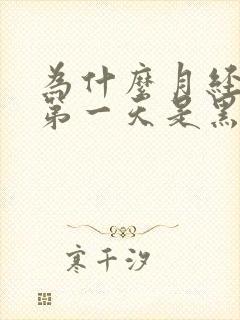 為什麼月經
第一天是黑
寒千汐